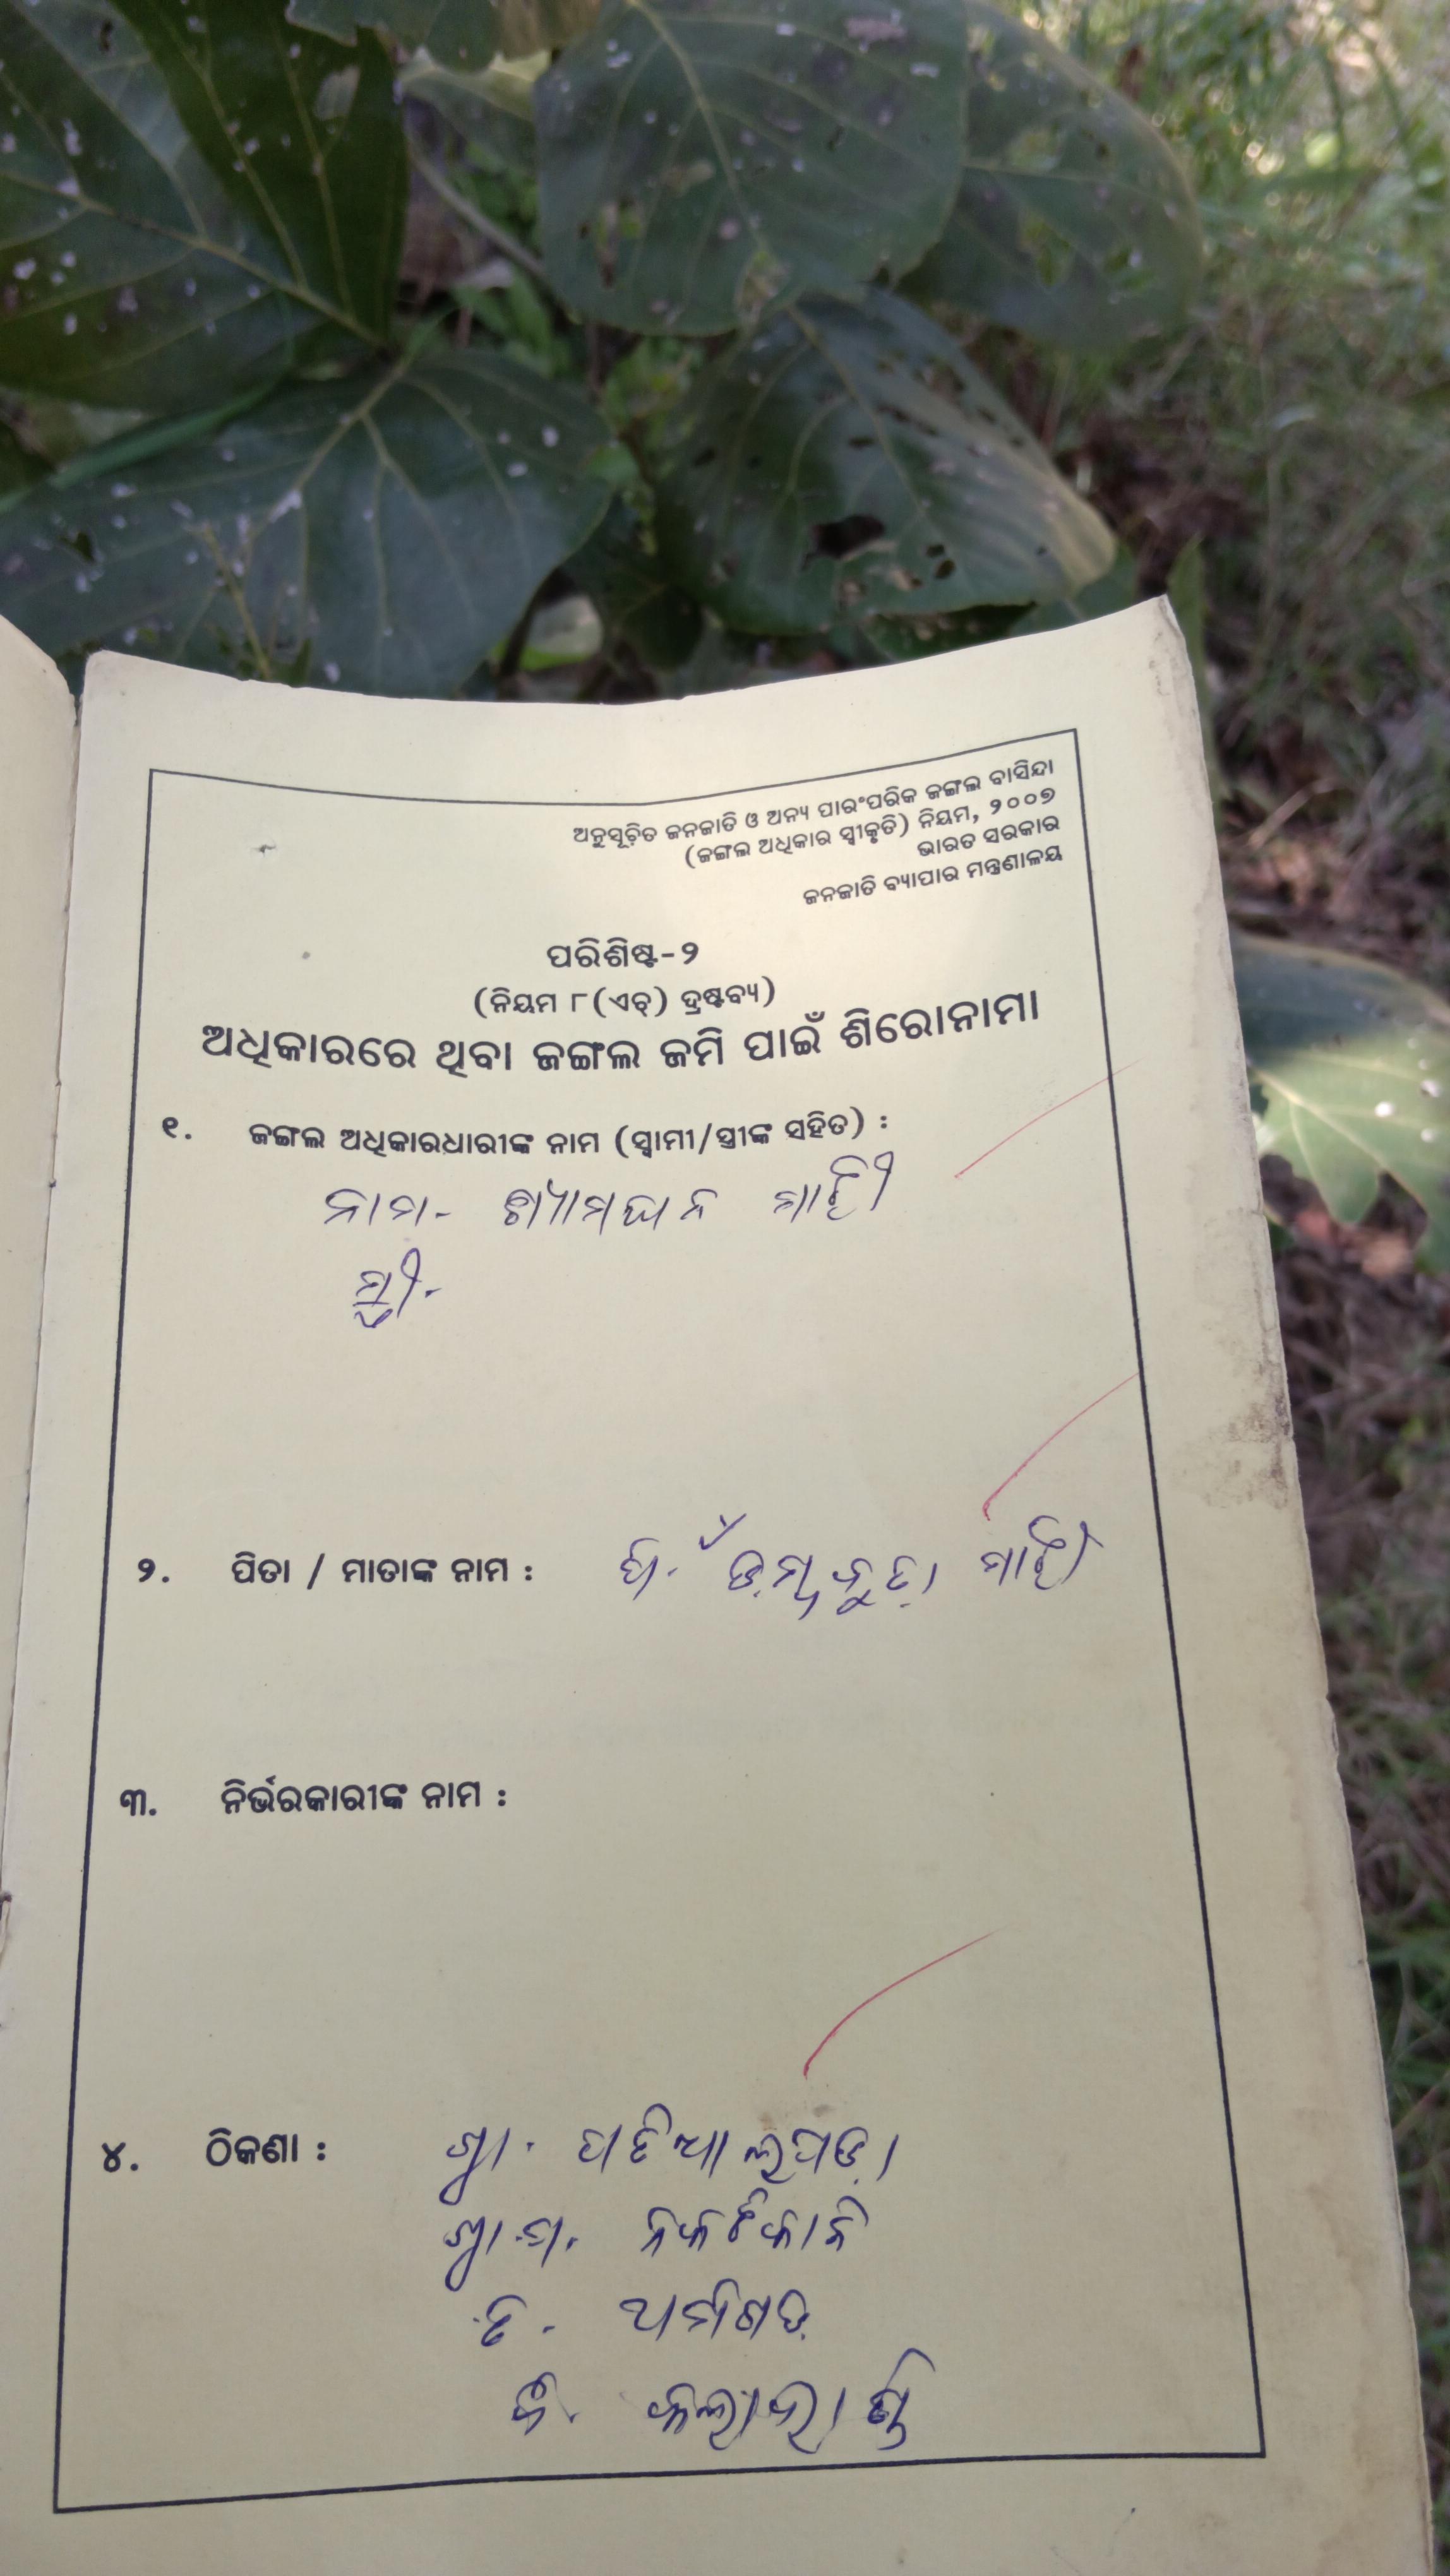 ଅନୁସୂଚିତ ଜନଜାତି ଓ ଅନ୍ୟ ପାରଂପରିକ ଜଙ୍ଗଲ ବାସିନ୍ଦା
(ଜଙ୍ଗଲ ଅଧିକାର ସ୍ୱୀକୃତି) ନିୟମ, ୨୦୦୭
ଭାରତ ସରକାର
ଜନଜାତି ବ୍ୟାପାର ମନ୍ତ୍ରଣାଳୟ
ପରିଶିଷ୍ଟ-୨
(ନିୟମ ୮(ଏଚ୍) ଦ୍ରଷ୍ଟବ୍ୟ)
ଅଧିକାରରେ ଥିବା ଜଙ୍ଗଲ ଜମି ପାଇଁ ଶିରୋନାମା
୧. ଜଙ୍ଗଲ ଅଧିକାରଧାରୀଙ୍କ ନାମ (ସ୍ୱାମୀ/ସ୍ତ୍ରୀଙ୍କ ସହିତ) :
ନାମ- ଶ୍ୟାମଘନ ମାଝି
ସ୍ତ୍ରୀ-
୨. ପିତା / ମାତାଙ୍କ ନାମ : ପି. ମାଝି
୩. ନିର୍ଭରକାରୀଙ୍କ ନାମ :
୪. ଠିକଣା : ଗ୍ରା.
ଗ୍ରା.ପ.
ଥ. ଧର୍ମଗଡ଼
ଜି. କଳାହାଣ୍ଡି